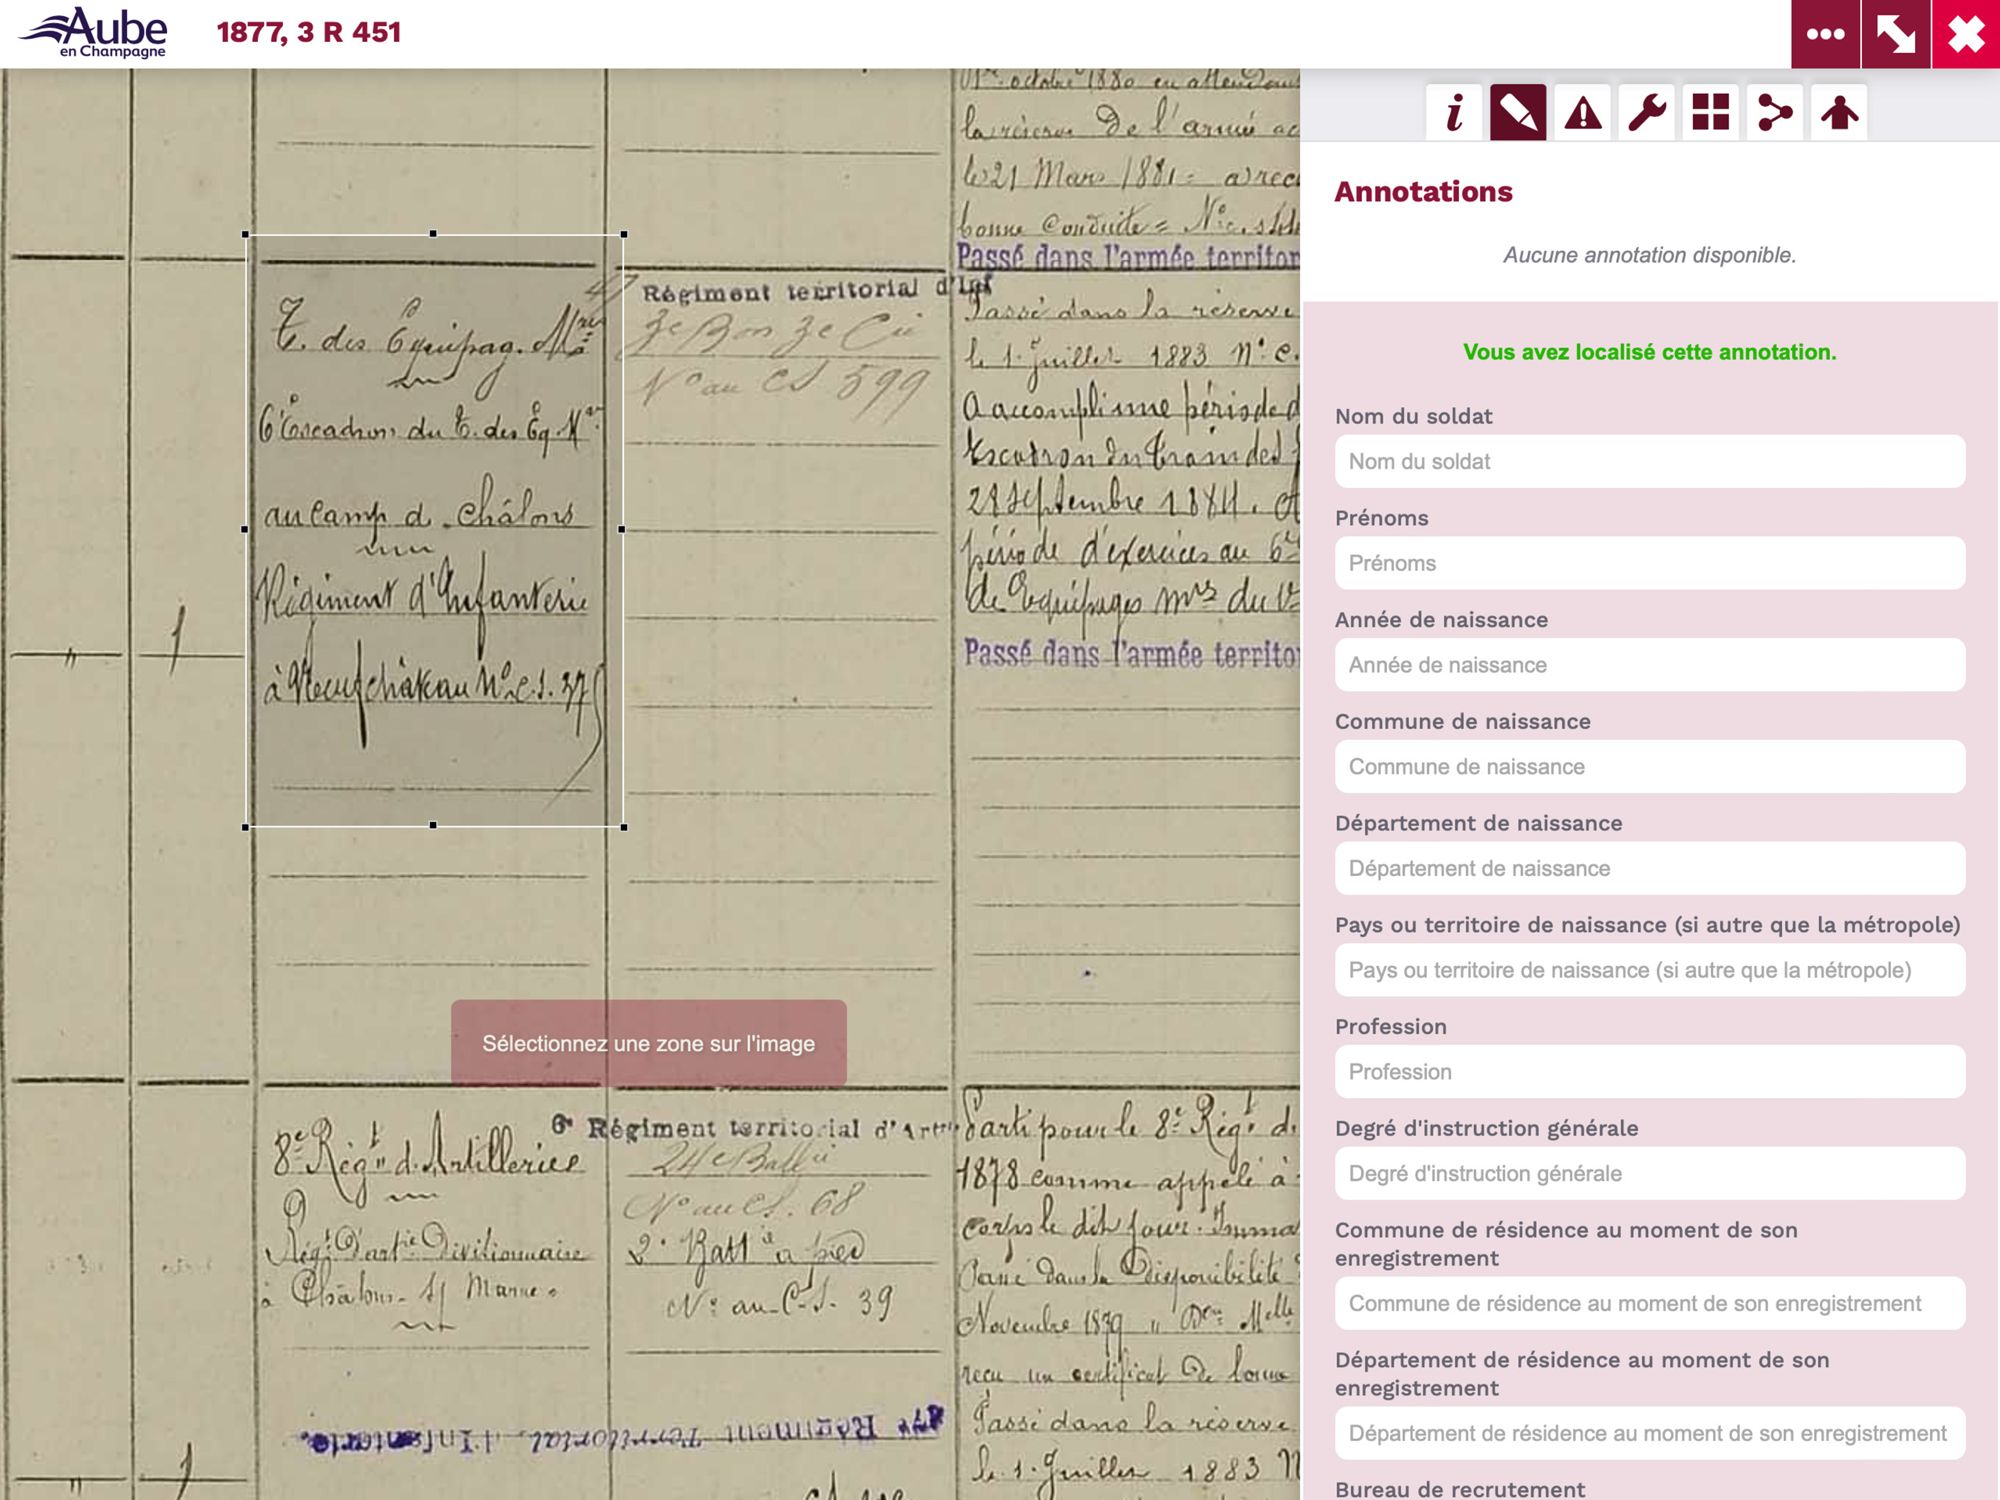 Aube
en Champagne
1877, 3 R 451
1er octobre 1880 en attendant
la réserve De l'armée ac
le 21 Mars 1881 = a rec
bonne Conduite =
Passé dans l'armée territor
T. des Equipag. Mres
6e Escadron du T. des Eq. Mres
au Camp d. Châlons
Régiment d'Infanterie
à Neufchâteau No C.S. 375
47 Régiment territorial d'Inf
3e Bon 3e Cie
No au CS 599
Passé dans la réserve
le 1. Juillet 1883 No C.
A accompli une période d
Escadron du Train des
28 Septembre 1884.
période d'exercices au 6e
des Equipages Mres du
Passé dans l'armée territo
"
1
8e Régt d'Artillerie
Régt D'artie Divisionnaire
à Châlons s/ Marne
6e Régiment territorial d'Art
24e Battie
No au C.S. 68
2e Batt à pied
No au C.S. 39
47e Régiment Territorial d'Infanterie.
Parti pour le 8e Régt d.
1878 comme appelé à
corps le dit jour. Imma
Passé dans la Disponibilité
Novembre 1879 "
reçu un certificat de bonne
Passé dans la réserve
le 1. Juillet 1883 N
"
1
Sélectionnez une zone sur l'image
Annotations
Aucune annotation disponible.
Vous avez localisé cette annotation.
Nom du soldat
Nom du soldat
Prénoms
Prénoms
Année de naissance
Année de naissance
Commune de naissance
Commune de naissance
Département de naissance
Département de naissance
Pays ou territoire de naissance (si autre que la métropole)
Pays ou territoire de naissance (si autre que la métropole)
Profession
Profession
Degré d'instruction générale
Degré d'instruction générale
Commune de résidence au moment de son
enregistrement
Commune de résidence au moment de son enregistrement
Département de résidence au moment de son
enregistrement
Département de résidence au moment de son enregistrement
Bureau de recrutement